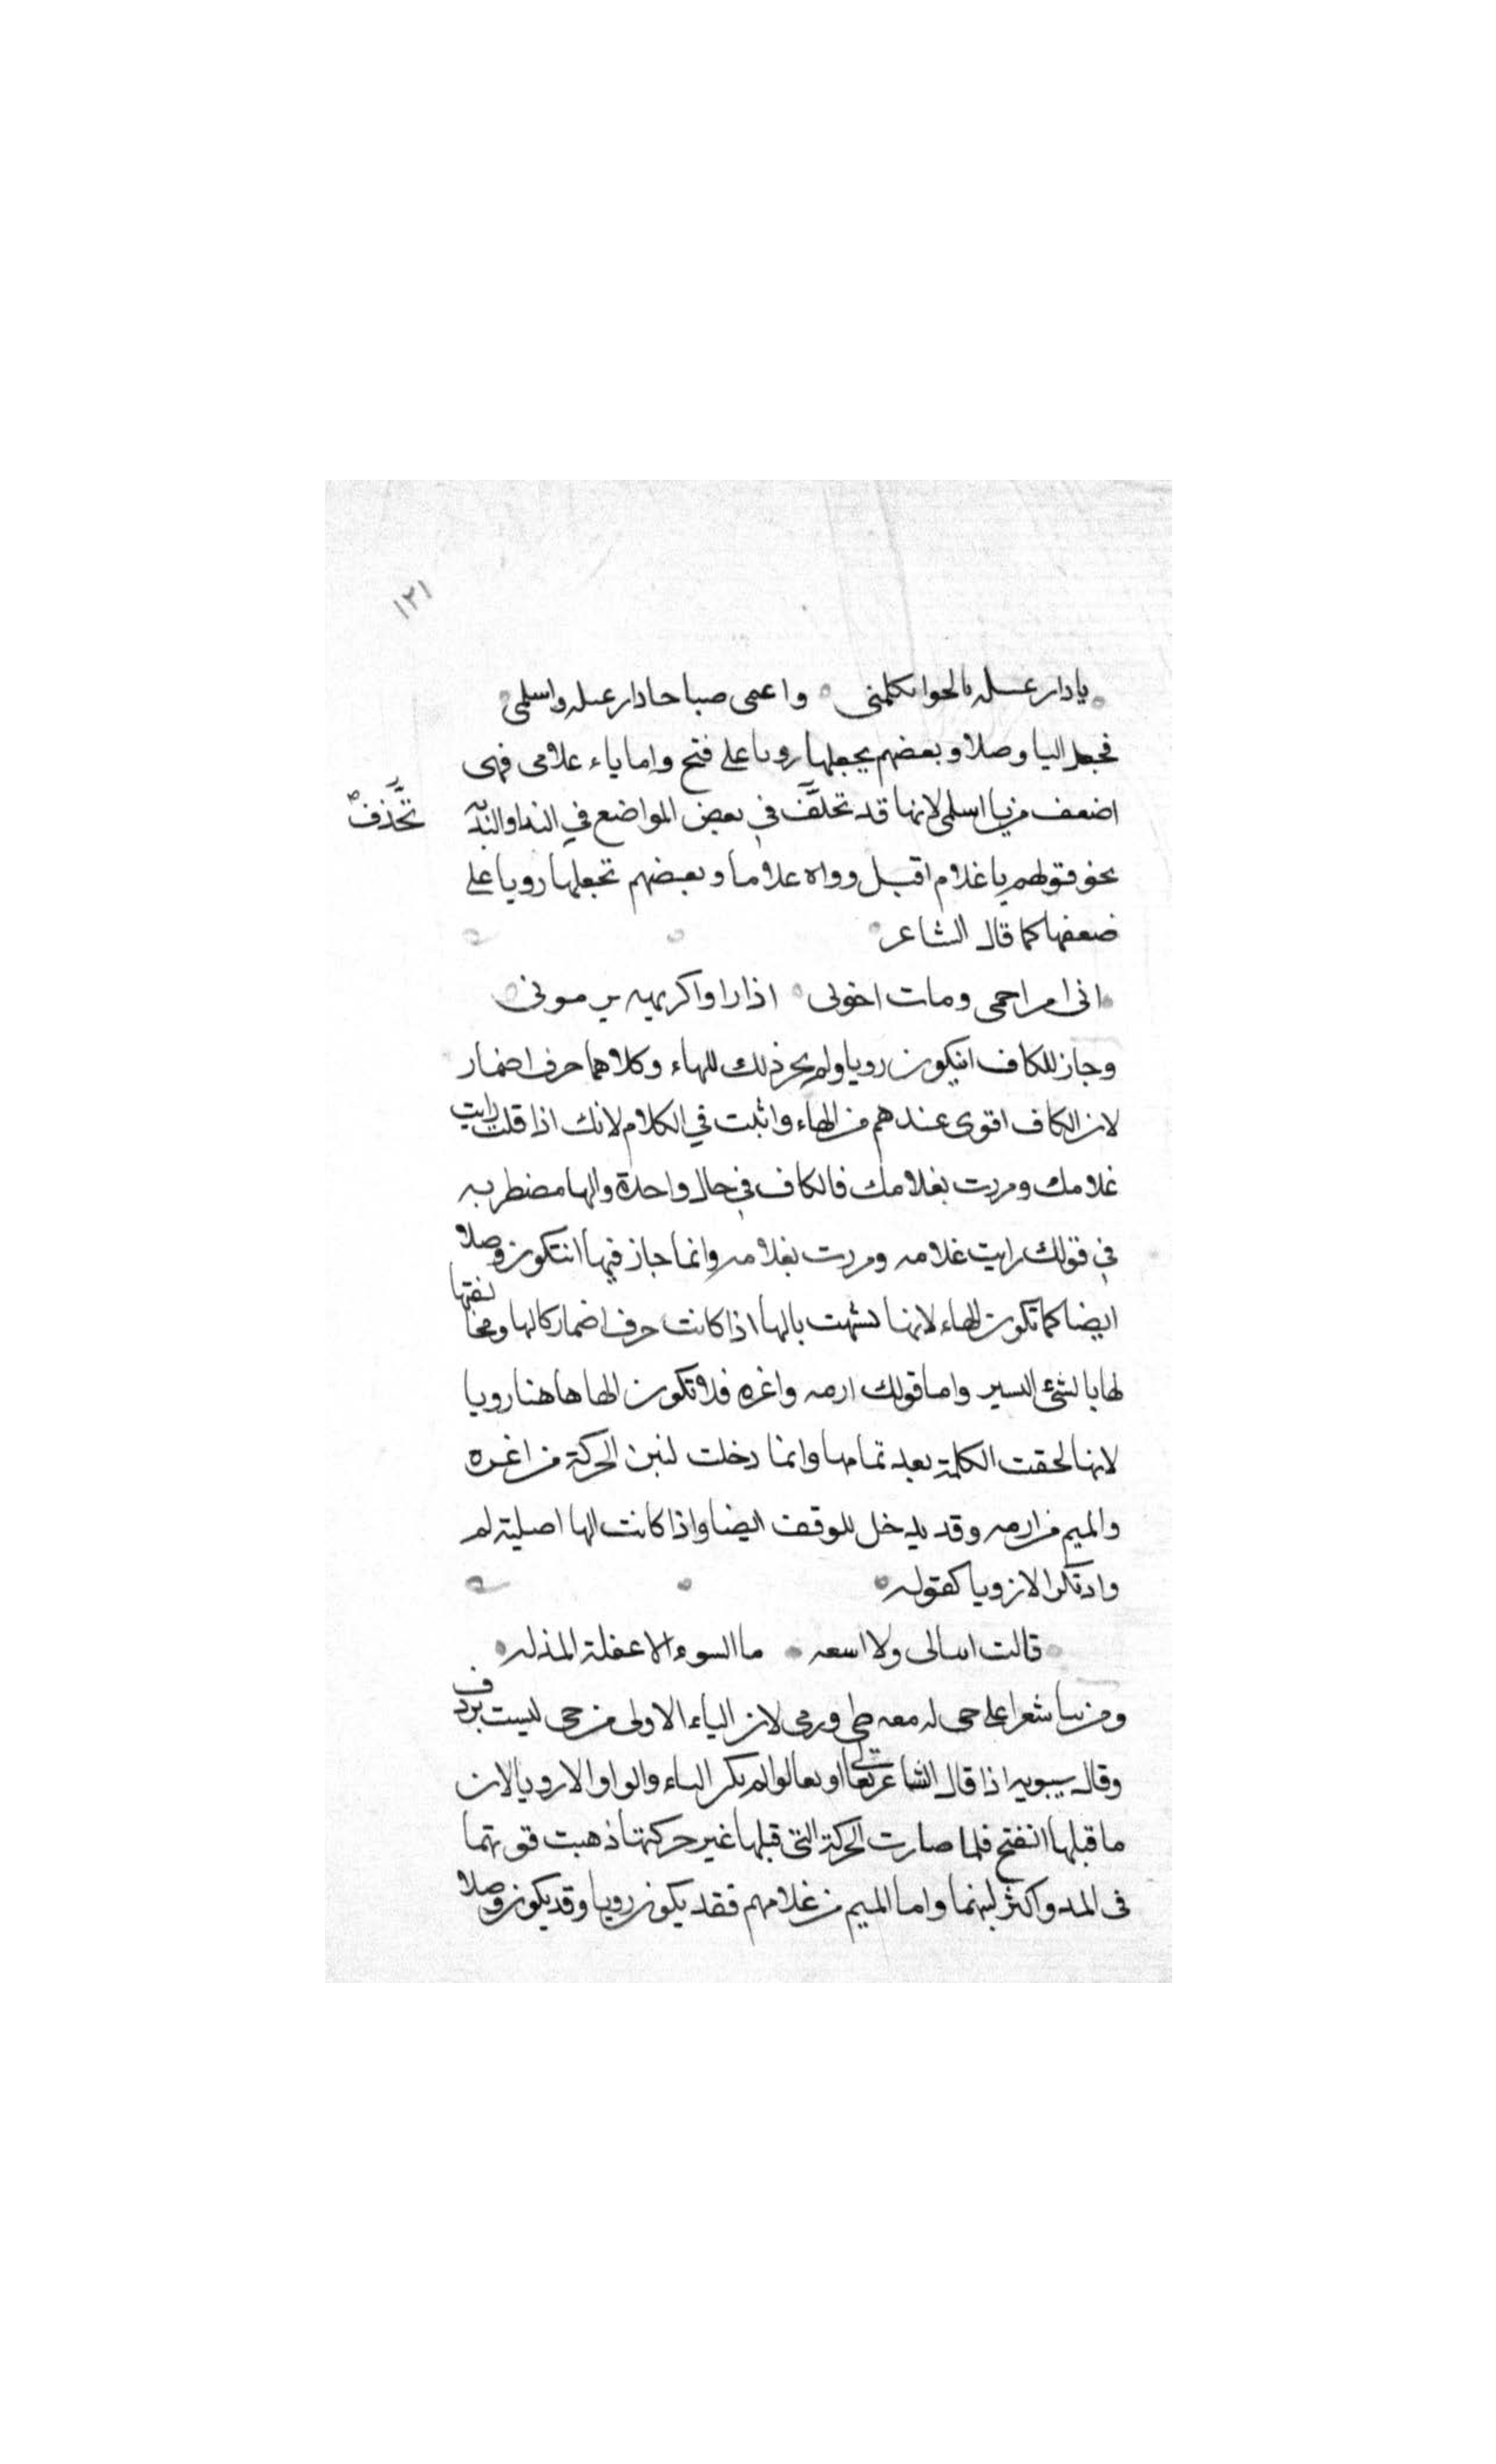 ١٢١
يا دار عبله بالجوا تكلمى واعمى صباحا دار عبله واسلمى
فجعل اليا وصلا وبعضهم يجعلها رويا على فتح واما ياء غلامى فهى
اضعف من يا اسلمى لانها قد تخلف في بعض المواضع في الندا والندبه
تحذف
نحو قولهم يا غلام اقبل وواه غلاما وبعضهم تجعلها رويا على
ضعفها كما قال الشاعر
انى امرا احمى ومات اخوتى اذا راوا كريهه يرمونى
وجاز للكاف ان يكون رويا ولم يجز ذلك للهاء وكلاهما حرف اضمار
لان الكاف اقوى عندهم من الهاء واثبت في الكلام لانك اذا قلت رايت
غلامك ومررت بغلامك فالكاف في حال واحدة والها مضطربه
في قولك رايت غلامه ومررت بغلامه وانما جاز فيها ان تكون وصلا
ايضا كما تكون الهاء لانها شبهت بالها اذا كانت حرف اضمار كالها ومخالفتها
لها بالشئ اليسير واما قولك ارمه واغره فلا تكون الها هاهنا رويا
لانها لحقت الكلمة بعد تمامها وانما دخلت لتبن الحركة من اغره
والميم من ارمه وقد يدخل للوقف ايضا واذا كانت الها اصلية لم
الا رويا كقوله
قالت ابيالى ولا اسعه ما السوء الا غفلة المذله
ومن بنا شعرا على حى له معه طى ورمى لان الياء الاولى من حى ليست بردف
وقال سيبويه اذا قال الشاعر تعالى او تعالوا لم يكن الياء والواو الا رويا لان
ما قبلها انفتح فلما صارت الحركة التى قبلها غير حركتها ذهبت قوتهما
فى المد واكثر لينهما واما الميم من غلامهم فقد يكون رويا وقد يكون وصلا